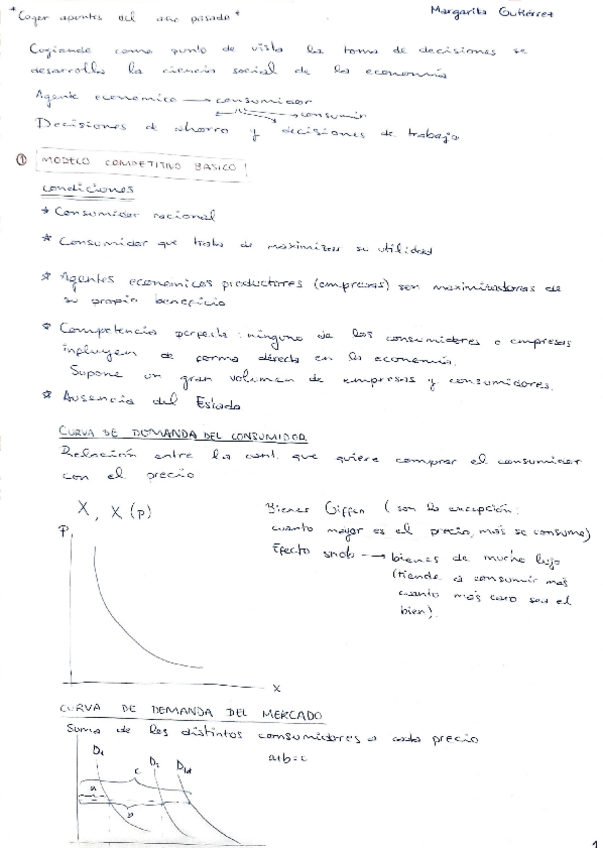 *Coger apuntes del año pasado*
Margarita Gutiérrez
Cogiendo como punto de vista la toma de decisiones se
desarrolla la ciencia social de la economía
Agente económico → consumidor
→ consumir
Decisiones de ahorro y decisiones de trabajo
① MODELO COMPETITIVO BASICO
Condiciones
* Consumidor racional
* Consumidor que trata de maximizar su utilidad
* Agentes económicos productores (empresas) son maximizadoras de
su propio beneficio
* Competencia perfecta: ninguno de los consumidores o empresas
influyen de forma directa en la economía.
Supone un gran volumen de empresas y consumidores.
* Ausencia del Estado
CURVA DE DEMANDA DEL CONSUMIDOR
Relación entre la cant. que quiere comprar el consumidor
con el precio
X, X (p)
Bienes Giffen (son la excepción:
cuanto mayor es el precio, más se consume)
Efecto snob → bienes de mucho lujo
(tiende a consumir más
cuanto más caro sea el
bien).
P
X
CURVA DE DEMANDA DEL MERCADO
Suma de los distintos consumidores a cada precio
a+b=c
D1
D2
c
a
b
1